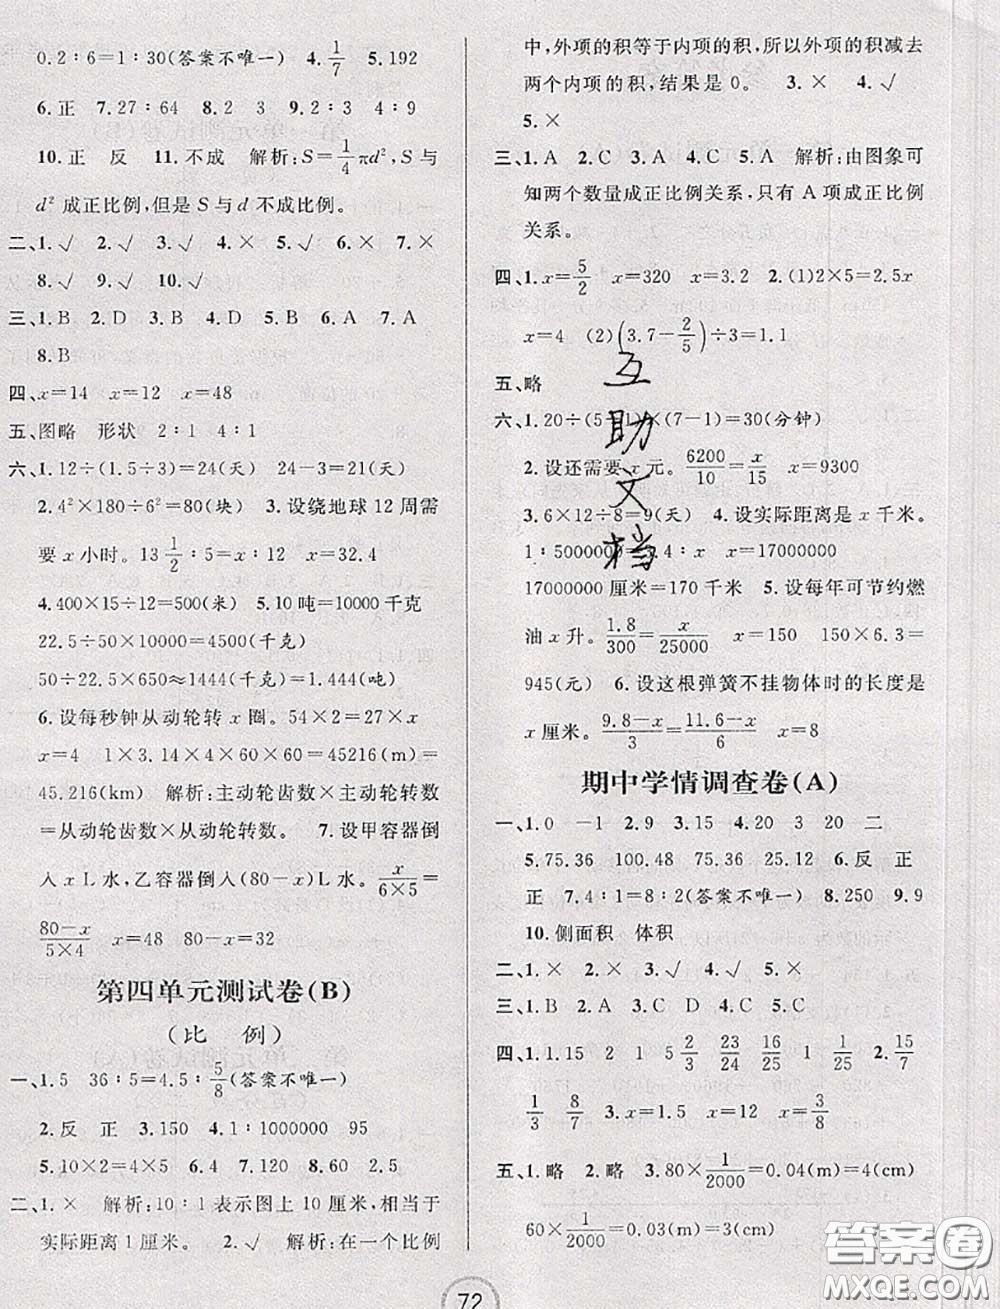 0.2∶6=1∶30(答案不唯一) 4.1/7 5.192
6.正 7.27∶64 8.2 3 4∶9
10.正 反 11.不成 解析:S=1/4πd²,S与
d²成正比例,但是S与d不成比例。
二、1.√ 2.√ 3.√ 4.× 5.√ 6.× 7.×
8.√ 9.√ 10.√
三、1.B 2.D 3.C 4.B 5.B 6.A 7.A
8.B
四、x=14 x=12 x=48
五、图略 形状 2∶1 4∶1
六、1.12÷(1.5÷3)=24(天) 24-3=21(天)
2.4²×180÷6²=80(块) 3.设绕地球12周需
要x小时。13 1/2∶5=x∶12 x=32.4
4.400×15÷12=500(米) 5.10吨=10000千克
22.5÷50×10000=4500(千克)
50÷22.5×650≈1444(千克)=1.444(吨)
6.设每秒钟从动轮转x圈。54×2=27×x
x=4 1×3.14×4×60×60=45216(m)=
45.216(km) 解析:主动轮齿数×主动轮转数
=从动轮齿数×从动轮转数。 7.设甲容器倒
入x L水,乙容器倒入(80-x)L水。x/(6×5)=
(80-x)/(5×4) x=48 80-x=32
第四单元测试卷(B)
(比 例)
一、1.5 36∶5=4.5∶5/8(答案不唯一)
2.反 正 3.150 4.1∶1000000 95
5.10×2=4×5 6.4 7.120 8.60 2.5
二、1.× 解析:10∶1表示图上10厘米,相当于
实际距离1厘米。 2.√ 解析:在一个比例
中,外项的积等于内项的积,所以外项的积减去
两个内项的积,结果是0。 3.× 4.√
5.×
三、1.A 2.C 3.A 4.C 5.A 解析:由图象可
知两个数量成正比例关系,只有A项成正比例
关系。
四、1.x=5/2 x=320 x=3.2 2.(1)2×5=2.5x
x=4 (2)(3.7-2/5)÷3=1.1
五、略
六、1.20÷(5-1)×(7-1)=30(分钟)
2.设还需要x元。6200/10=x/15 x=9300
3.6×12÷8=9(天) 4.设实际距离是x千米。
1∶5000000=3.4∶x x=17000000
17000000厘米=170千米 5.设每年可节约燃
油x升。1.8/300=x/25000 x=150 150×6.3=
945(元) 6.设这根弹簧不挂物体时的长度是
x厘米。(9.8-x)/3=(11.6-x)/6 x=8
期中学情调查卷(A)
一、1.0 -1 2.9 3.15 4.20 3 20 二
5.75.36 100.48 75.36 25.12 6.反 正
正 7.4∶1=8∶2(答案不唯一) 8.250 9.9
10.侧面积 体积
二、1.× 2.× 3.× 4.√ 5.×
三、1.B 2.A 3.D 4.C 5.C
四、1.15 2 1 5 2/3 23/25 16/25 1 2.15/7
1/3 8/7 3.x=2/5 x=12 x=3/8
五、1.略 2.略 3.80×1/2000=0.04(m)=4(cm)
60×1/2000=0.03(m)=3(cm)
72
互
助
文
档
答案圈
MXQE.COM